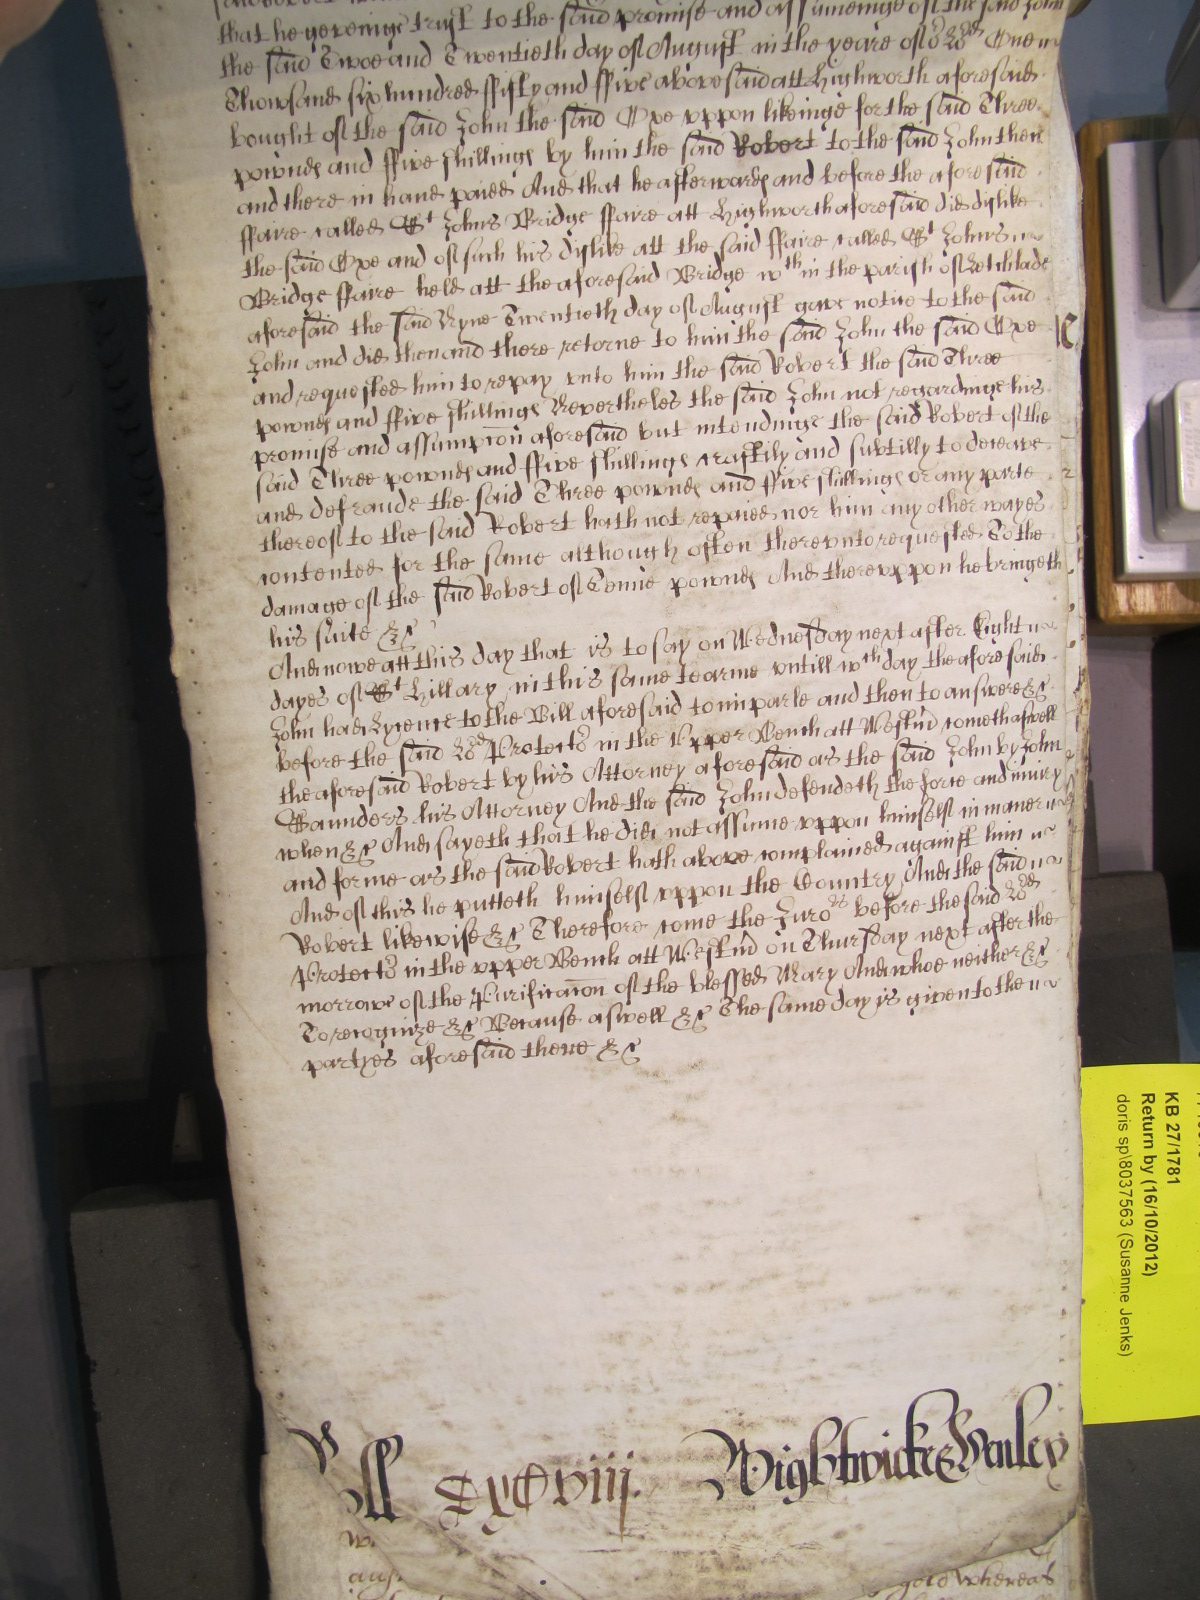 that he geveinge trust to the said promise and assumeinge of the said John
the said Twoe and Twentieth day of August in the yeare of oʳ Lord One
Thowsand six hundred ffifty and ffive abovesaid att Highworth aforesaid
bought of the said John the said Oxe uppon likeinge for the said Three
pownds and ffive shillings by him the said Robert to the said John then
and there in hand paied And that he afterwards and before the aforesaid
ffaire called Sᵗ Johns Bridge ffaire att Highworth aforesaid did dislike
the said Oxe and of such his dislike att the said ffaire called Sᵗ Johns
Bridge ffaire held att the aforesaid Bridge wᵗʰin the parish of Letchlade
aforesaid the said Nyne Twentieth day of August gave notice to the said
John and did then and there retorne to him the said John the said Oxe
and requested him to repay unto him the said Robert the said Three
pownds and ffive shillings Neverthelés the said John not regardinge his
promise and assumpcōn aforesaid but intendinge the said Robert of the
said Three pownds and ffive shillings craftily and subtilly to deceave
and defraude the said Three pownds and ffive shillings or any parte
thereof to the said Robert hath not repaied nor him any other wayes
contented for the same although often thereunto requested To the
damage of the said Robert of Tenne pownds And thereuppon he bringeth
his suite &c
And nowe att this day that is to say on Wednesday next after Eight
dayes of Sᵗ Hillary in this same tearme untill wᶜʰ day the aforesaid
John had Lycence to the Bill aforesaid to imparle and then to answere &c
before the said Lord Protectoʳ in the Upper Bench att Westm̄ cometh aswell
the aforesaid Robert by his Attorney aforesaid as the said John by John
Saunders his Attorney And the said John defendeth the force and iniury
when &c And sayeth that he did not assume uppon himself in maner
and forme as the said Robert hath above complained against him
And of this he putteth himself uppon the Country And the said
Robert likewise &c Therefore come the Juroʳˢ before the said Lord
Protectoʳ in the upper Bench att Westm̄ on Thursday next after the
morrowe of the Purificacōn of the blessed Mary And whoe neither &c
To recognize &c Because aswell &c The same day is given to the
partyes aforesaid there &c
Wightwicke & Henley
gold whereas
KB 27/1781
Return by (16/10/2012)
doris sp\8037563 (Susanne Jenks)